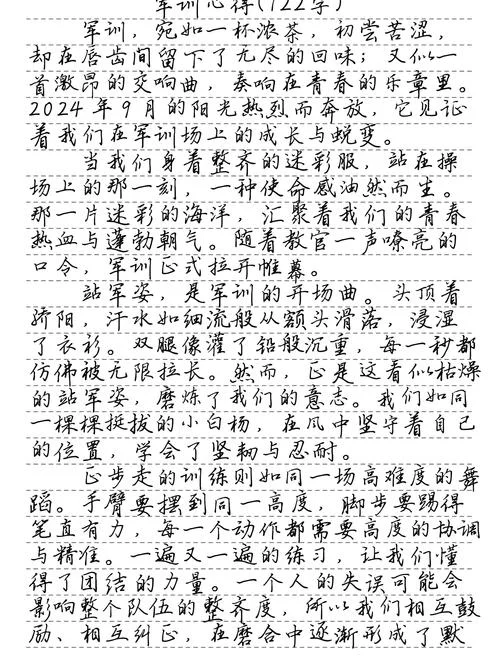 军训心得(722字)
军训，宛如一杯浓茶，初尝苦涩，
却在唇齿间留下了无尽的回味；又似一
首激昂的交响曲，奏响在青春的乐章里。
2024年9月的阳光热烈而奔放，它见证
着我们在军训场上的成长与蜕变。
当我们身着整齐的迷彩服，站在操
场上的那一刻，一种使命感油然而生。
那一片迷彩的海洋，汇聚着我们的青春
热血与蓬勃朝气。随着教官一声嘹亮的
口令，军训正式拉开帷幕。
站军姿，是军训的开场曲。头顶着
骄阳，汗水如细流般从额头滑落，浸湿
了衣衫。双腿像灌了铅般沉重，每一秒都
仿佛被无限拉长。然而，正是这看似枯燥
的站军姿，磨炼了我们的意志。我们如同
一棵棵挺拔的小白杨，在风中坚守着自己
的位置，学会了坚韧与忍耐。
正步走的训练则如同一场高难度的舞
蹈。手臂要摆到同一高度，脚步要踢得
笔直有力，每一个动作都需要高度的协调
与精准。一遍又一遍的练习，让我们懂
得了团结的力量。一个人的失误可能会
影响整个队伍的整齐度，所以我们相互鼓
励、相互纠正，在磨合中逐渐形成了默